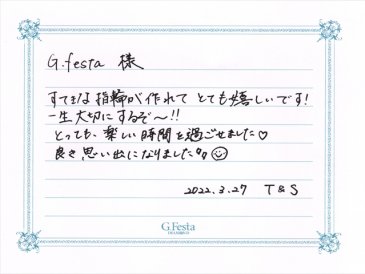 G.festa 様
すてきな指輪が作れて とても嬉しいです!
一生大切にするぞ〜!!
とっても、楽しい時間を過ごせました♡
良き思い出になりました☺
2022.3.27 T&S
G.Festa